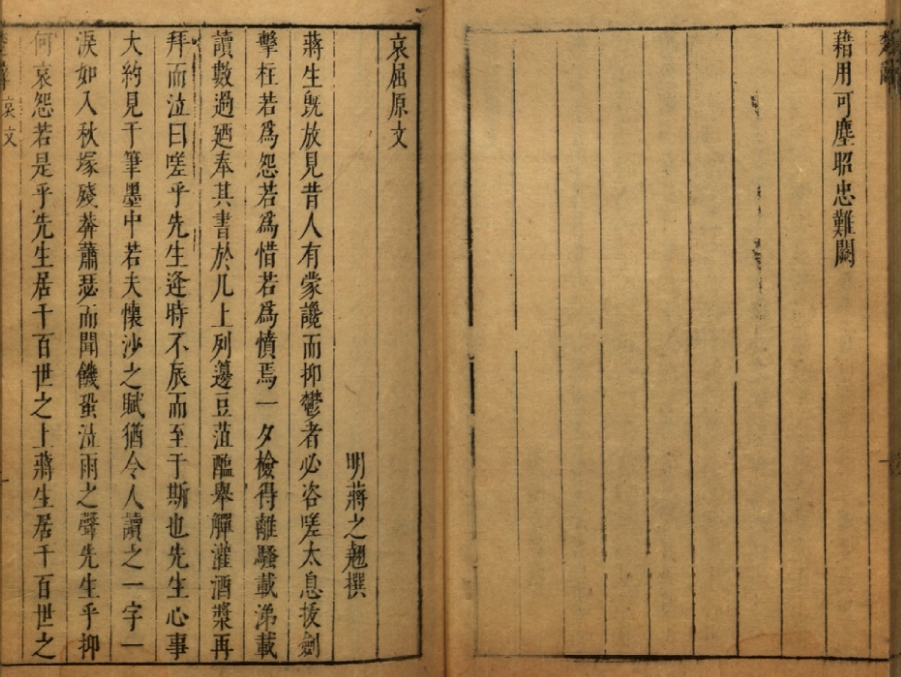 藉用可塵昭忠難闕
哀屈原文
明蔣之翹撰
蔣生旣放見昔人有蒙讒而抑鬱者必咨嗟太息拔劍
擊柱若爲怨若爲惜若爲憤焉一夕檢得離騷載涕載
讀數過廼奉其書於几上列籩豆菹醢舉觶灌酒漿再
拜而泣曰嗟乎先生逢時不辰而至于斯也先生心事
大約見于筆墨中若夫懷沙之賦猶令人讀之一字一
淚如入秋塚殘莽蕭瑟而聞饑蛩泣雨之聲先生乎抑
何哀怨若是乎先生居千百世之上蔣生居千百世之
哀文